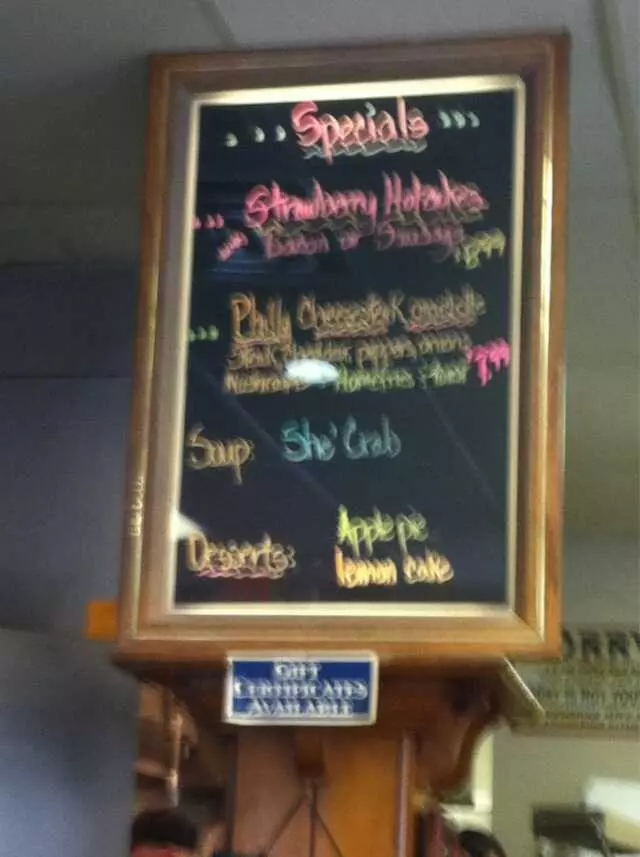 Specials
Strawberry Hotcakes
with Bacon or Sausage
Philly Cheesesteak omelette
Steak, cheddar, peppers, onions
Mushrooms + Homefries + Toast 7.99
Soup: She' Crab
Desserts: Apple pie
lemon cake
GIFT
CERTIFICATES
AVAILABLE